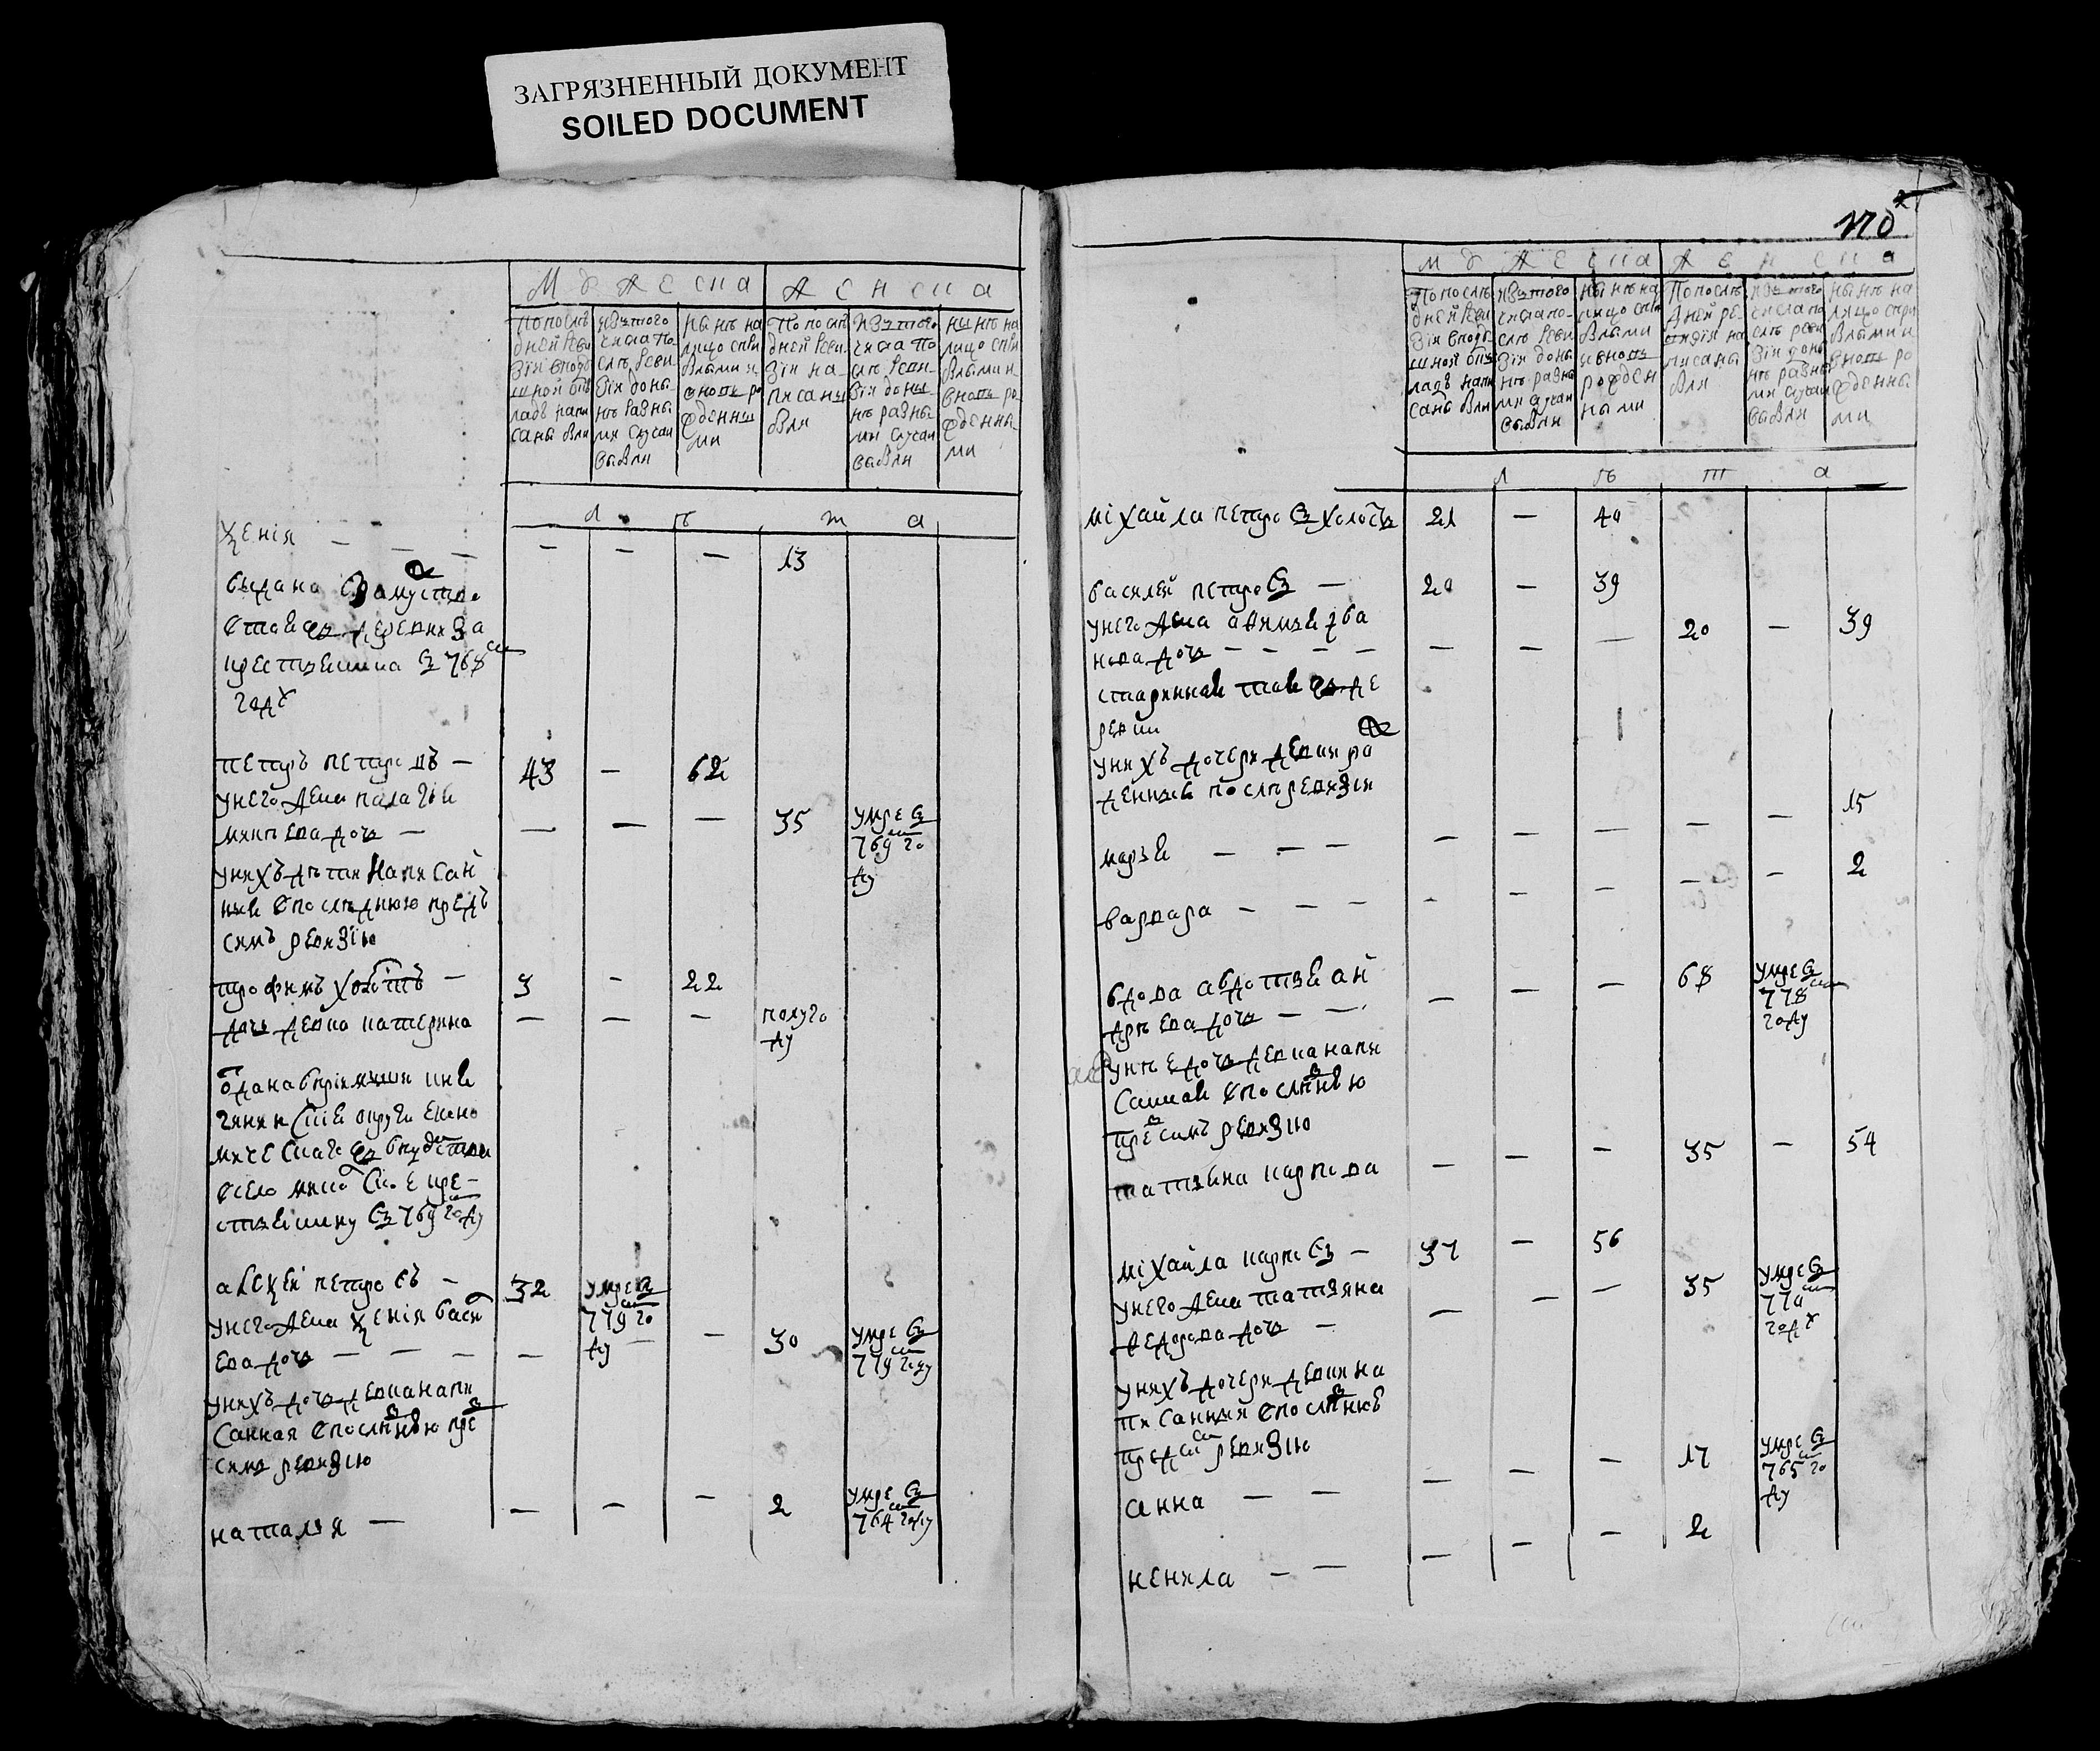 ЗАГРЯЗНЕННЫЙ ДОКУМЕНТ
SOILED DOCUMENT
мужеска женска
по после
дней реви
зіи в поду
шной ок
ладъ напи
саны были
изъ того
числа по
слѣ реви
зіи доны
нѣ разны
ми случаи
выбыли
нынѣ на
лицо спри
былыми и
вновь ро
жденны
ми
по послѣ
дней реви
зіи на
писаны
были
изъ того
числа по
слѣ реви
зіи доны
нѣ разны
ми случаи
выбыли
нынѣ на
лицо спри
былыми и
вновь ро
жденны
ми
л ѣ т а
ѯенія — — — — — — 13
выдана взамуство
престьянина въ 768м
году
петръ петровъ — 43 — 62
у него жена палагѣя
микиѳева дочь — — — — 35 умре въ
769м го
ду
у нихъ дѣти написан
ные в последнюю предъ
симъ ревизію
трофимъ холостъ — 3 — 22
дочь девка катерина — — — полуго
ду
алексей петровъ — 32 умре въ
779м го
ду
у него жена ѯенія васил
ева дочь — — — — — 30 умре въ
779м году
у нихъ дочь девка напи
санная в последнюю пред
симъ ревизію
наталья — — — — 2 умре въ
764м году
170
мужеска женска
по послѣ
дней реви
зіи в поду
шной ок
ладъ напи
саны были
изъ того
числа по
слѣ реви
зіи доны
нѣ разны
ми случаи
выбыли
нынѣ на
лицо спри
былыми
и вновь
рожден
ными
по послѣ
дней ре
визіи на
писаны
были
изъ того
числа по
слѣ реви
зіи доны
нѣ разны
ми случаи
выбыли
нынѣ на
лицо спри
былыми и
вновь ро
жденны
ми
л ѣ т а
міхайла петровъ холостъ 21 — 40
василей петровъ — 20 — 39
у него жена авимья
нова дочь — — — — — — — 20 — 39
старинная тояжъ де
ревни
у нихъ дочери девки ро
жденные после ревизіи
марья — — — — — — — — 15
варвара — — — — — — — — 2
вдова авдотья ан
дрѣева дочь — — — — — 68 умре въ
778м
году
у нѣе дочь девка напи
санная в последнюю
пред симъ ревизію
татьяна карпова — — — 35 — 54
міхайла карповъ — 37 — 56
у него жена татьяна
ѳедорова дочь — — — — 35 умре въ
770м
году
у нихъ дочери девки на
писанныя в последнюю
пред сим ревизію
анна — — — — — 17 умре въ
765м го
ду
ненила — — — — — 2